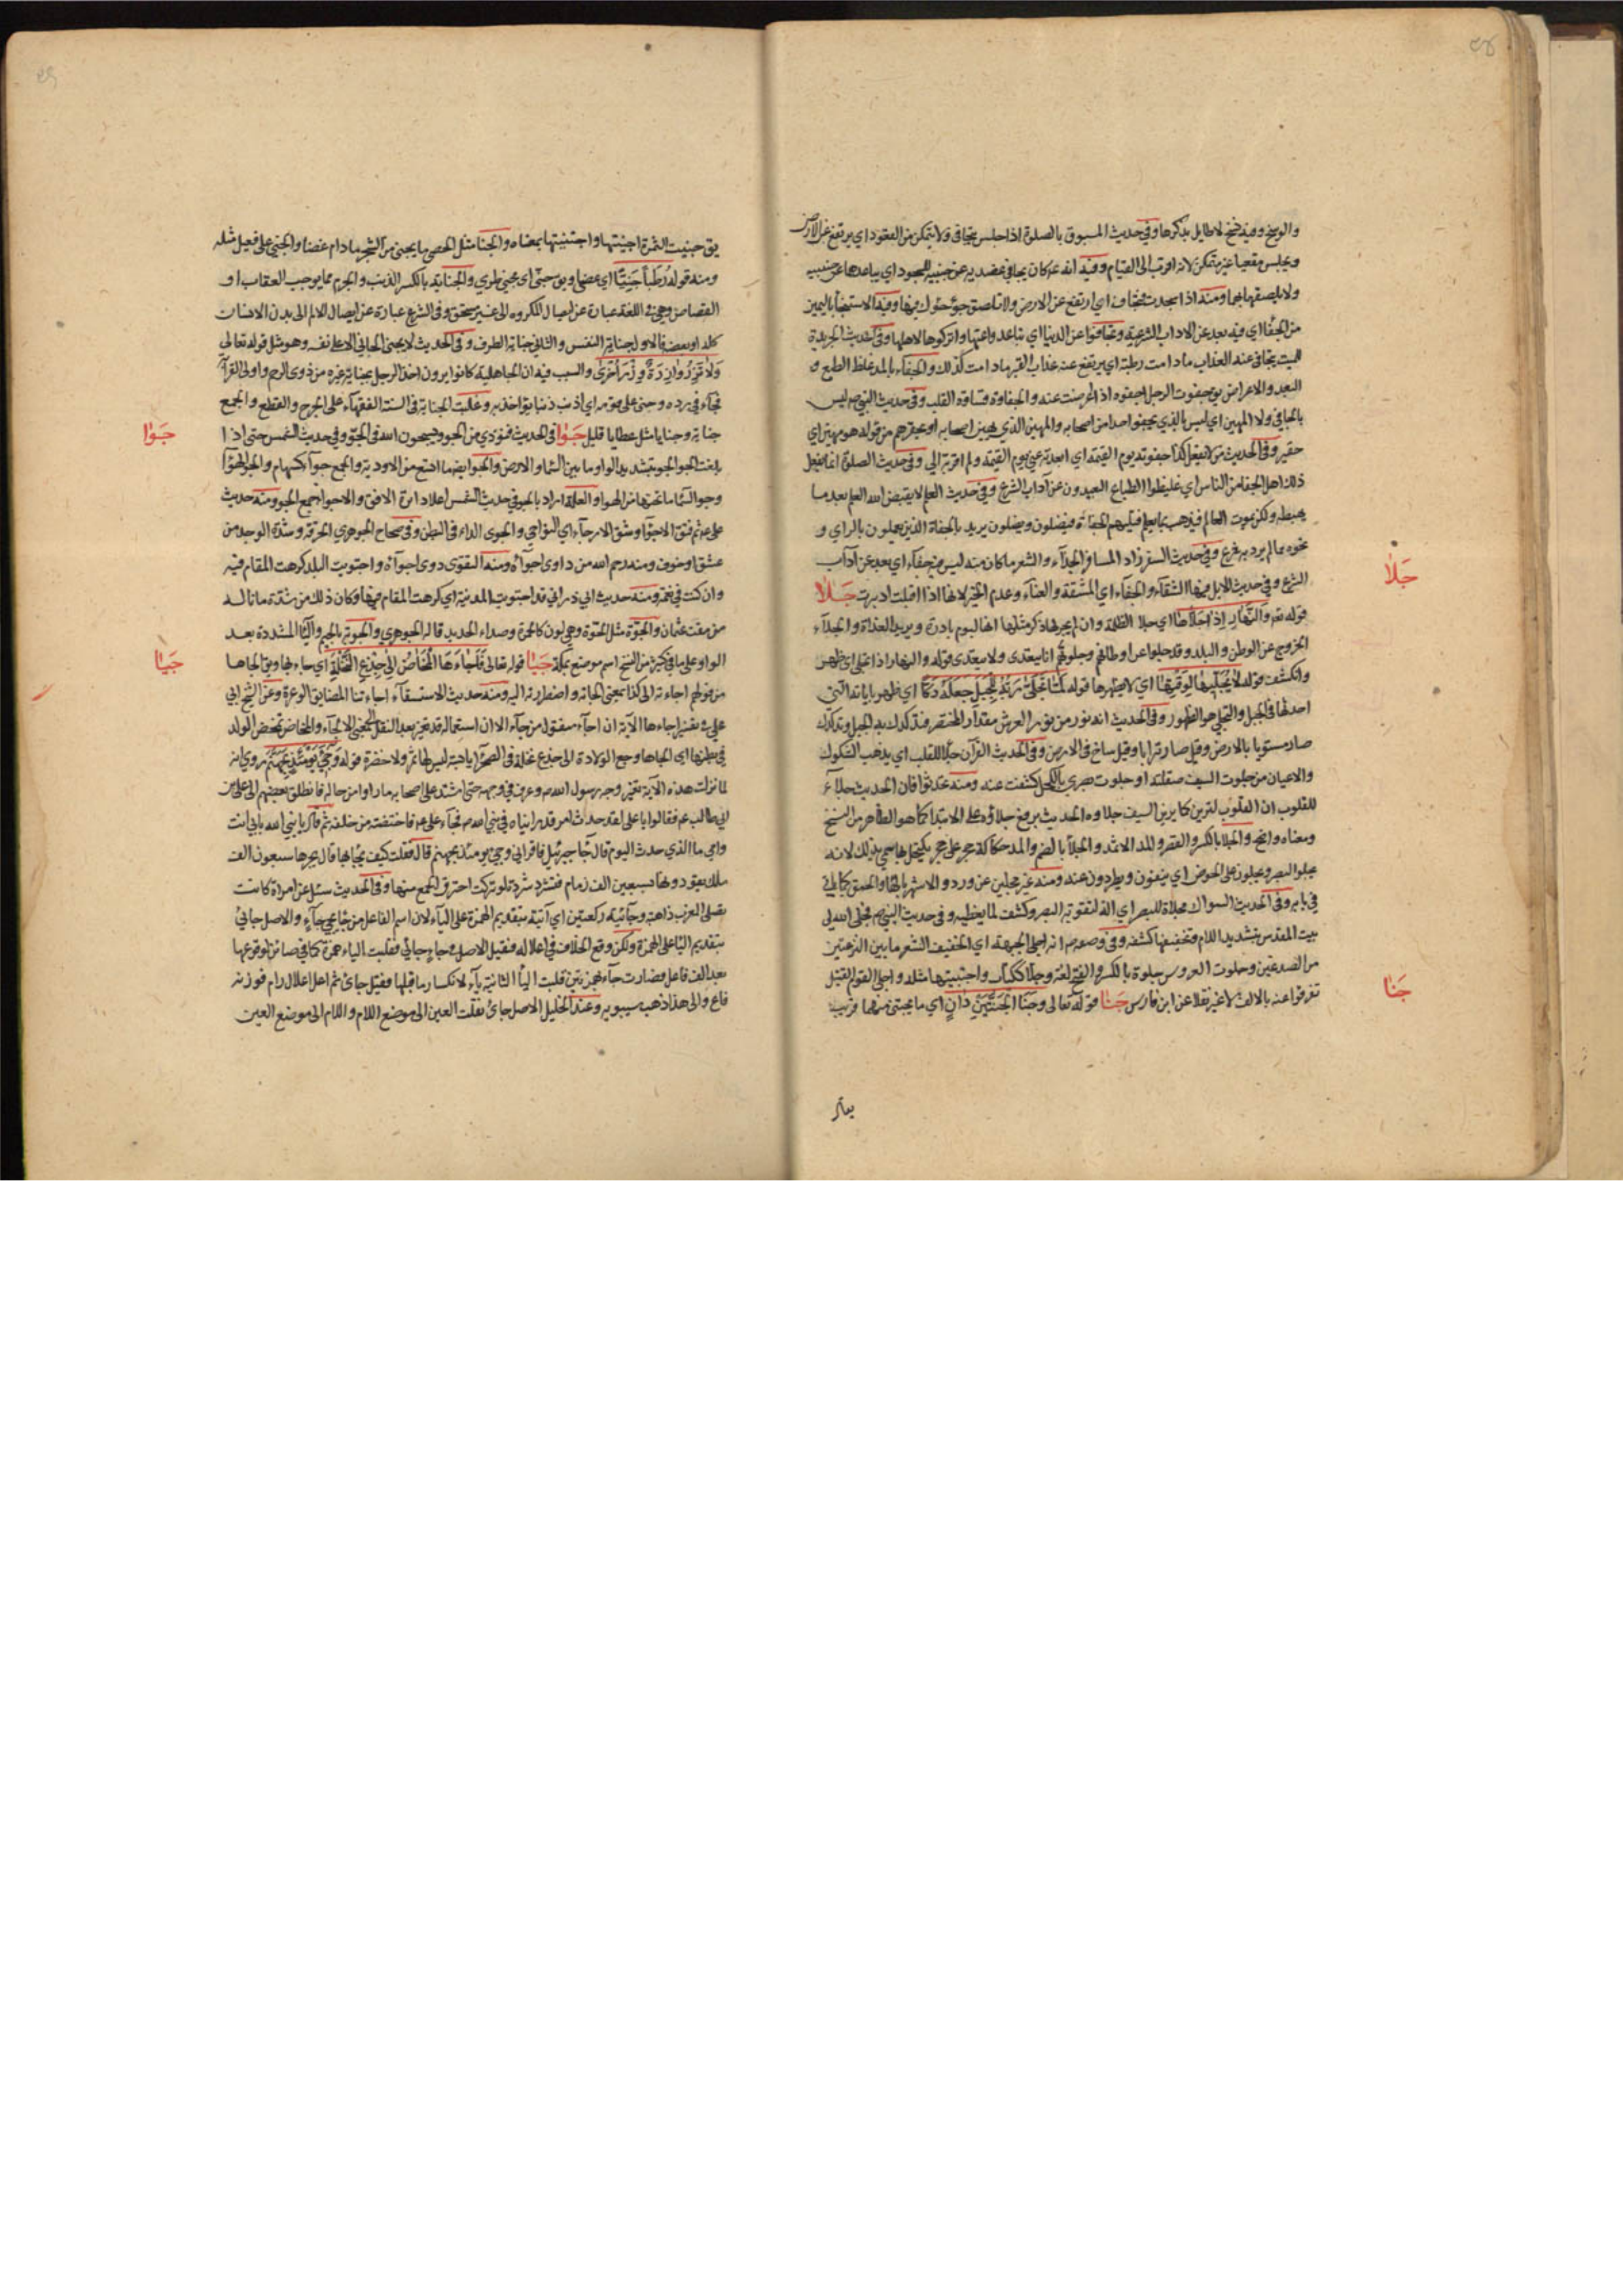 والوسخ وفيه نسخ لا طايل بذكرها وفي حديث المسبوق بالصلوة اذا جلس يتجافى ولا يتمكن من القعود اي يرتفع عن الارض
ويجلس مقعيا غير متمكن لانه اقرب الى القيام وفيه انه ع كان يجافي عضديه عن جنبيه للسجود اي يباعدها عن جنبيه
ولا يلصقهما بهما ومنه اذا سجدت فتجاف اي ارتفع عن الارض ولا تلصق جوءجوك بها وفيه الاستنجا باليمين
من الجفا اي فيه بعد عن الاداب الشرعية وتجافوا عن الدنيا اي تباعدوا عنها واتركوها لاهلها وفي حديث الجريدة
للميت يتجافى عنه العذاب ما دامت رطبة اي يرتفع عنه عذاب القبر ما دامت كذلك والجفاء بالمد غلظ الطبع و
البعد والاعراض يق جفوت الرجل اجفوه اذا اعرضت عنه والجفاوة قساوة القلب وفي حديث النبي ص ليس
بالجافي ولا المهين اي ليس بالذي يجفوا احدا من اصحابه والمهين الذي يهين اصحابه او يحقرهم من قوله هو مهين اي
حقير وفي الحديث من لا يفعل كذا جفوته يوم القيمة اي ابعدته عني يوم القيمة ولم اقربه الي وفي حديث الصلوة انما يفعل
ذلك اهل الجفا من الناس اي غليظوا الطباع البعيدون عن آداب الشرع وفي حديث العلم لا يقبض الله العلم بعد ما
يهبطه ولكن يموت العالم فيذهب بما يعلم فيليهم الجفاة فيضلون ويضلون يريد بالجفاة الذين يعملون بالراي و
نحوه مما لم يرد به شرع وفي حديث السفر زاد المسافر الحداء والشعر ما كان منه ليس فيه جفاء اي بعد عن آداب
الشرع وفي حديث الابل فيها الشقاء والجفاء اي المشقة والعناء وعدم الخير لانها اذا اقبلت ادبرت جَلَا
قوله تعم والنَّهار إذا جلّاها اي جلا الظلمة وان لم يجر لها ذكر مثلها انها اليوم باردة ويريد الغداة والجلاء
الخروج عن الوطن والبلد وقد جلوا عن اوطانهم وجلوتهم انا يتعدى ولا يتعدى قوله والنهار اذا تجلى اي ظهر
وانكشف قوله لا يُجلّيها لوقتها اي لا يظهرها قوله فلمّا تجلّى ربّه للجبل جعله دكّا اي ظهر باياته التي
احدثها في الجبل والتجلي هو الظهور وفي الحديث انه نور من نور العرش مقدار الخنصر فتدكدك به الجبل وتدكدك
صار مستويا بالارض وقيل صار ترابا وقيل ساخ في الارض وفي الحديث القرآن جلاء للقلب اي يذهب الشكوك
والاحيان من جلوت السيف صقلته او جلوت بصري بالكحل كشفت عنه ومنه تحدثوا فان الحديث جلاء
للقلوب ان القلوب لترين كما يرين السيف جلاوه الحديث برفع جلاؤه على الابتدا كما هو الظاهر من النسخ
ومعناه واضح والجلا بالكسر والقصر والمد الاثمد والجلأ بالضم والمد حكاكة حجر على حجر يكتحل بها سمي بذلك لانه
يجلوا البصر ويجلون على الحوض اي ينفون ويطردون عنه
في بابه وفي الحديث السواك مجلاة للبصر اي آلة لتقوية البصر وكشف لما يغطيه وفي حديث النبي ص فجلى الله لي
بيت المقدس بتشديد اللام وتخفيفها كشفه وفي وصفه ص انه اجلى الجبهة اي الخفيف الشعر ما بين النزعتين
من الصدغين وجلوت العروس جلوة بالكسر والفتح لغة وجلاء ككتاب واجتليتها مثله واجلى القوم القتيل
تفرقوا عنه بالالف لا غير نقلا عن ابن فارس جَنَا قوله تعالى وجنا الجنّتين دانٍ اي ما يجتنى منهما قريب
يقال
جَلَا
جَنَا
يق جنيت الثمرة اجنيها واجتنيتها بمعناه والجنا مثل الحصى ما يجنى من الشجر ما دام غضا والجني على فعيل مثله
ومنه قوله رطبا جنيّا اي غضا ويق جنيّ اي مجني طري والجناية بالكسر الذنب والجرم مما يوجب العقاب او
القصاص وهي في اللغة عبارة عن ايصال المكروه الى غير مستحق وفي الشرع عبارة عن ايصال الالم الى بدن الانسان
كله او بعضه فالاول جناية النفس والثاني جناية الطرف وفي الحديث لا يجني الجاني الا على نفسه وهو مثل قوله تعالى
ولا تزر وازرة وزر أخرى والسبب فيه ان الجاهلية كانوا يرون اخذ الرجل بجناية غيره من ذوي الرحم واولى القرآبة
وجنى على قومه اي اذنب ذنبا يؤاخذ به وغلبت الجناية في السنة الفقهاء على الجرح والقطع والجمع
جناية وجنايا مثل عطايا قليل جَوَا في الحديث فنودي من الجو ويسبحون الله في الجو وفي حديث الشمس حتى اذا
بلغت الجو الجو بتشديد الواو ما بين السما والارض والجو ايضا ما اتسع من الاودية والجمع جواء كسهام
وجو السما ما تحتها من الهوا ولعله اراد بالجو في حديث الشمس اعلا دائرة الافق والاجواء جمع الجو ومنه حديث
على ع ثم فتق الاجواء وشق الارجاء اي النواحي والجوى الداء في البطن وفي صحاح الجوهري الحرقة وشدة الوجد من
عشق او خوف ومنه رحم الله من داوى اجواءه ومنه التقوى دوى اجواءه واجتويت البلد كرهت المقام فيه
وان كنت في نعمة ومنه حديث ابي ذر اني قد اجتويت المدينة اي كرهت المقام فيها وكان ذلك من شدة ما ناله
من مقت عثمان والجوّة مثل الحوّة وهي لون كالحمرة وصداء الحديد قاله الجوهري والجوية بالجيم واليا المشددة بعد
الواو على ما في كثير من النسخ اسم موضع بمكة جَيَا قوله تعالى فاجاءها المخاض الى جذع النخلة اي جاء بها ويق الجاها
من قولهم اجاءته الى كذا بمعنى الجاته واضطررته اليه ومنه حديث الاستسقاء اجاءتنا المضايق الوعرة وعن الشيخ ابي
علي في تفسير اجاءها الآية ان اجاء منقول من جاء الا ان استعماله قد تغير بعد النقل الى معنى الالجاء والمخاض تمخض الولد
في بطنها اي الجاها وجع الولادة الى جذع نخلة في الصحراء يابسة ليس لها ثمر ولا خضرة قوله وجيء يومئذ بجهنم روي انه
لما نزلت هذه الآية تغير وجه رسول الله ص وعرف في وجهه حتى اشتد على اصحابه ما راوا من حاله فانطلق بعضهم الى علي بن
ابي طالب ع فقالوا يا علي لقد حدث امر قد رايناه في نبي الله ص فجاء علي ع فاحتضنه من خلفه ثم قال يا نبي الله بابي انت
وامي ما الذي حدث اليوم قال جا جبرئيل فاقراني وجيء يومئذ بجهنم قال فقلت كيف يجاء بها قال يجرها سبعون الف
ملك يقودونها بسبعين الف زمام فتشرد شردة لو تركت احترق الجمع منها وفي الحديث سئل عن امراة كانت
تصلى المغرب ذاهبة وجائية ركعتين اي آتية بتقديم الهمزة على الياء لان اسم الفاعل من جا يجيء جاء والاصل جائئ
بتقديم اليا على الهمزة ولكن وقع الخلاف في اعلاله فقيل الاصل في جاء جائئ فقلبت الياء همزة كما في صائن لوقوعها
بعد الف فاعل فصارت جاء بهمزتين قلبت الثانية ياء لانكسار ما قبلها فقيل جائ ثم اعل اعلال رام فوزنه
فاع والى هذا ذهب سيبويه وعند الخليل الاصل جائ نقلت العين الى موضع اللام واللام الى موضع العين
جَوَا
جَيَا